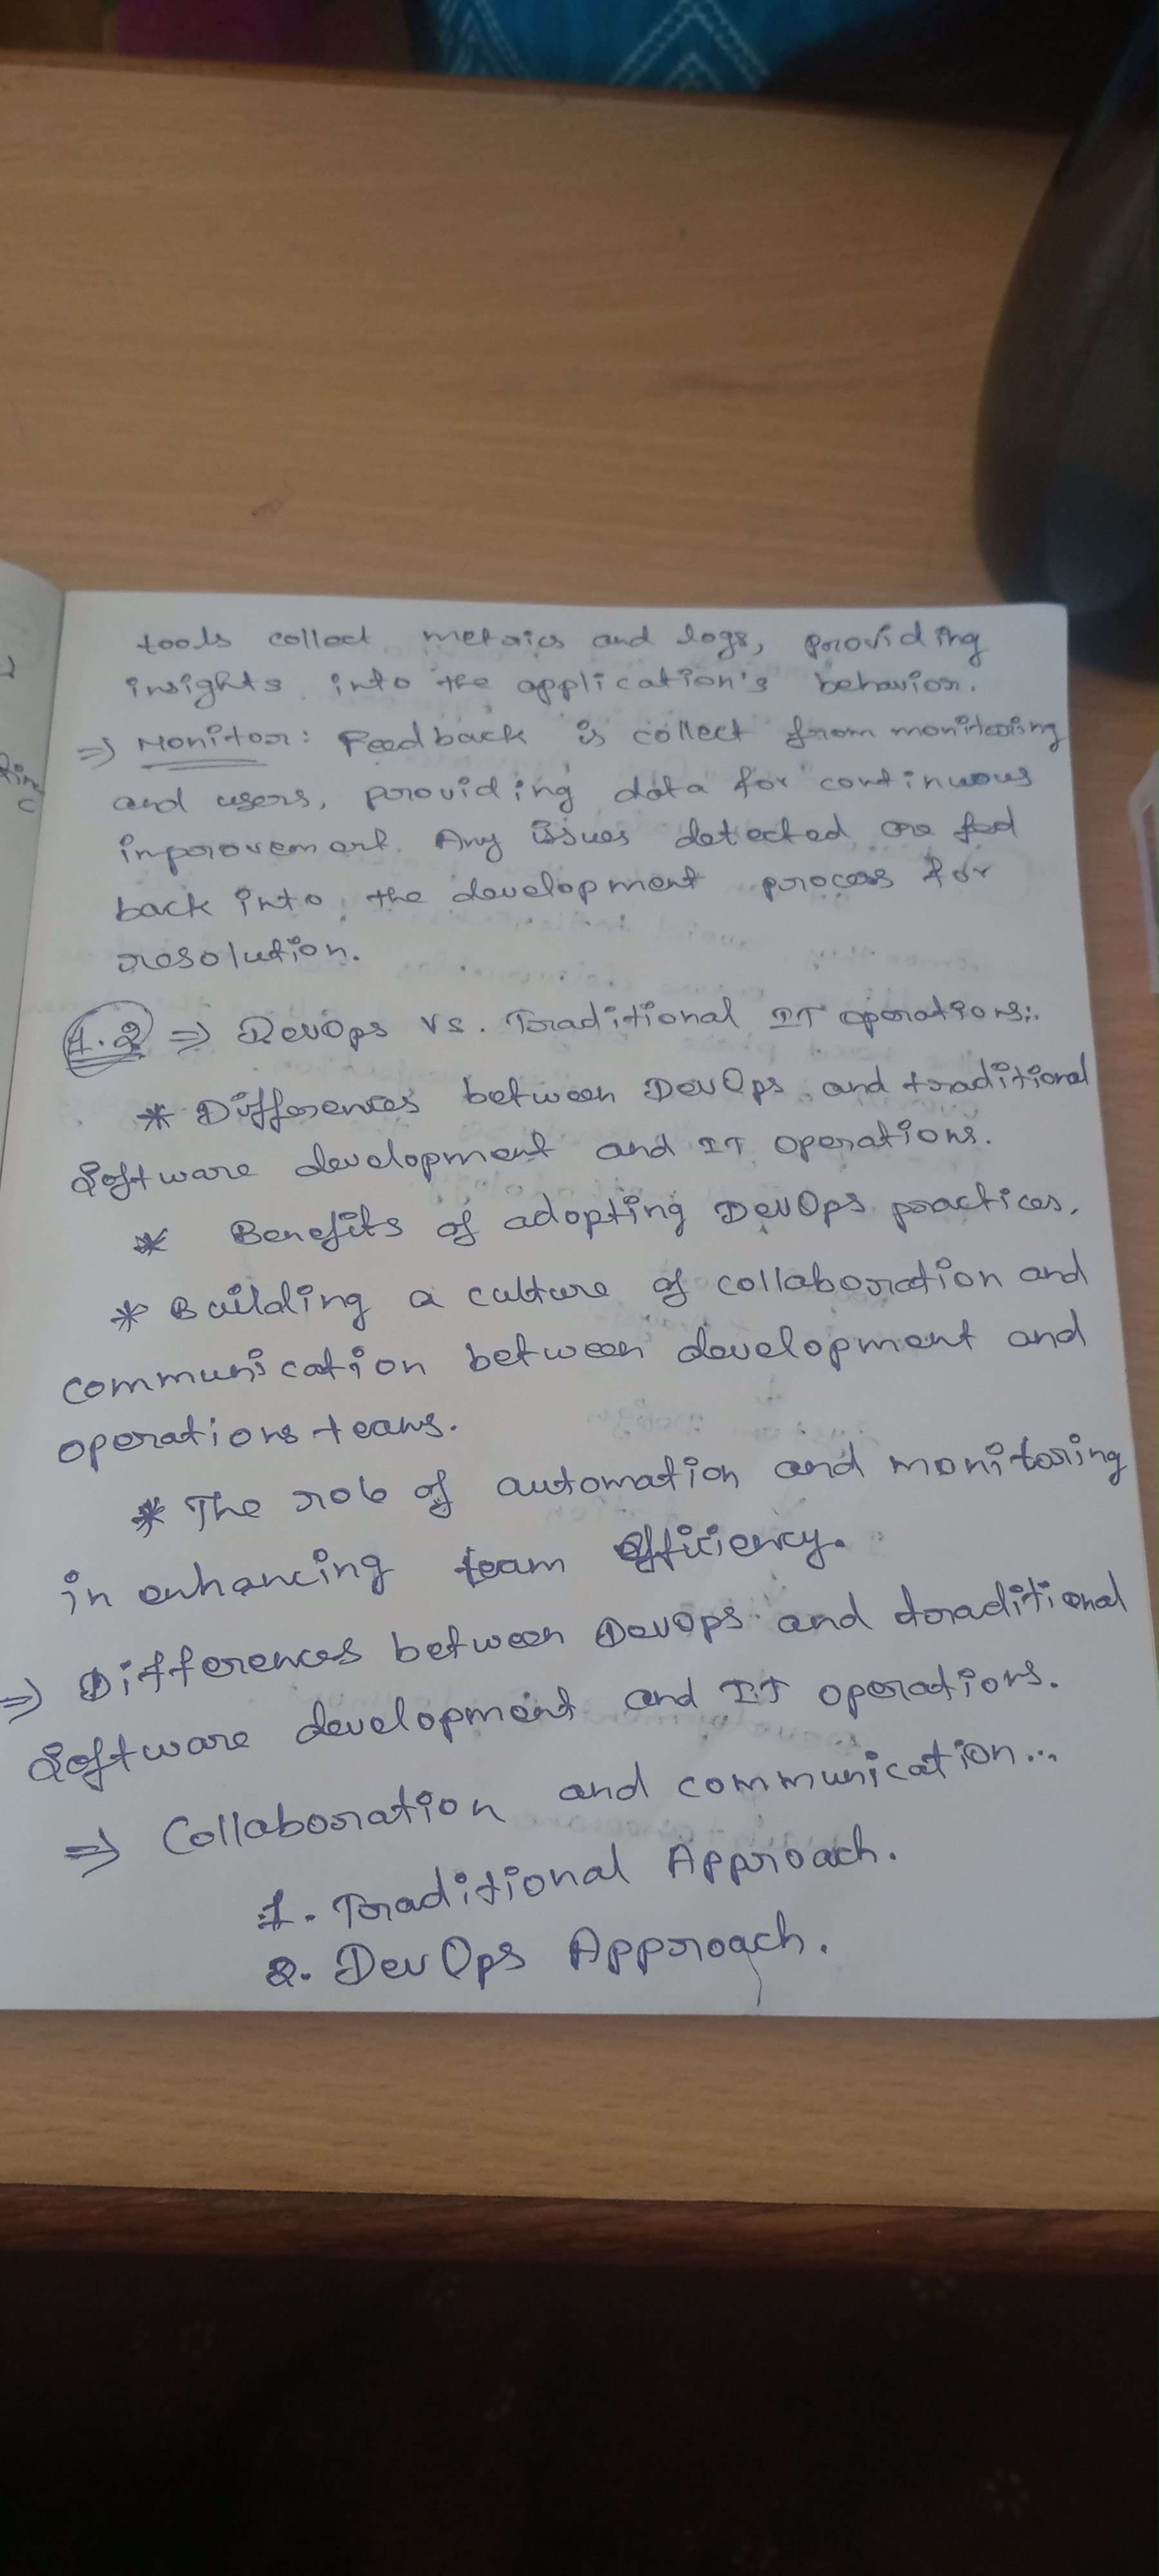 tools collect metrics and logs, providing
insights into the application's behavior.
⇒ Monitor: Feedback is collect from monitoring
and users, providing data for continuous
improvement. Any issues detected are fed
back into the development process for
resolution.
1.2 ⇒ DevOps vs. Traditional IT operations:.
* Differences between DevOps and traditional
Software development and IT operations.
* Benefits of adopting DevOps practices.
* Building a culture of collaboration and
communication between development and
operations teams.
* The role of automation and monitoring
in enhancing team efficiency.
⇒ Differences between DevOps and traditional
Software development and IT operations.
⇒ Collaboration and communication...
1. Traditional Approach.
2. DevOps Approach.